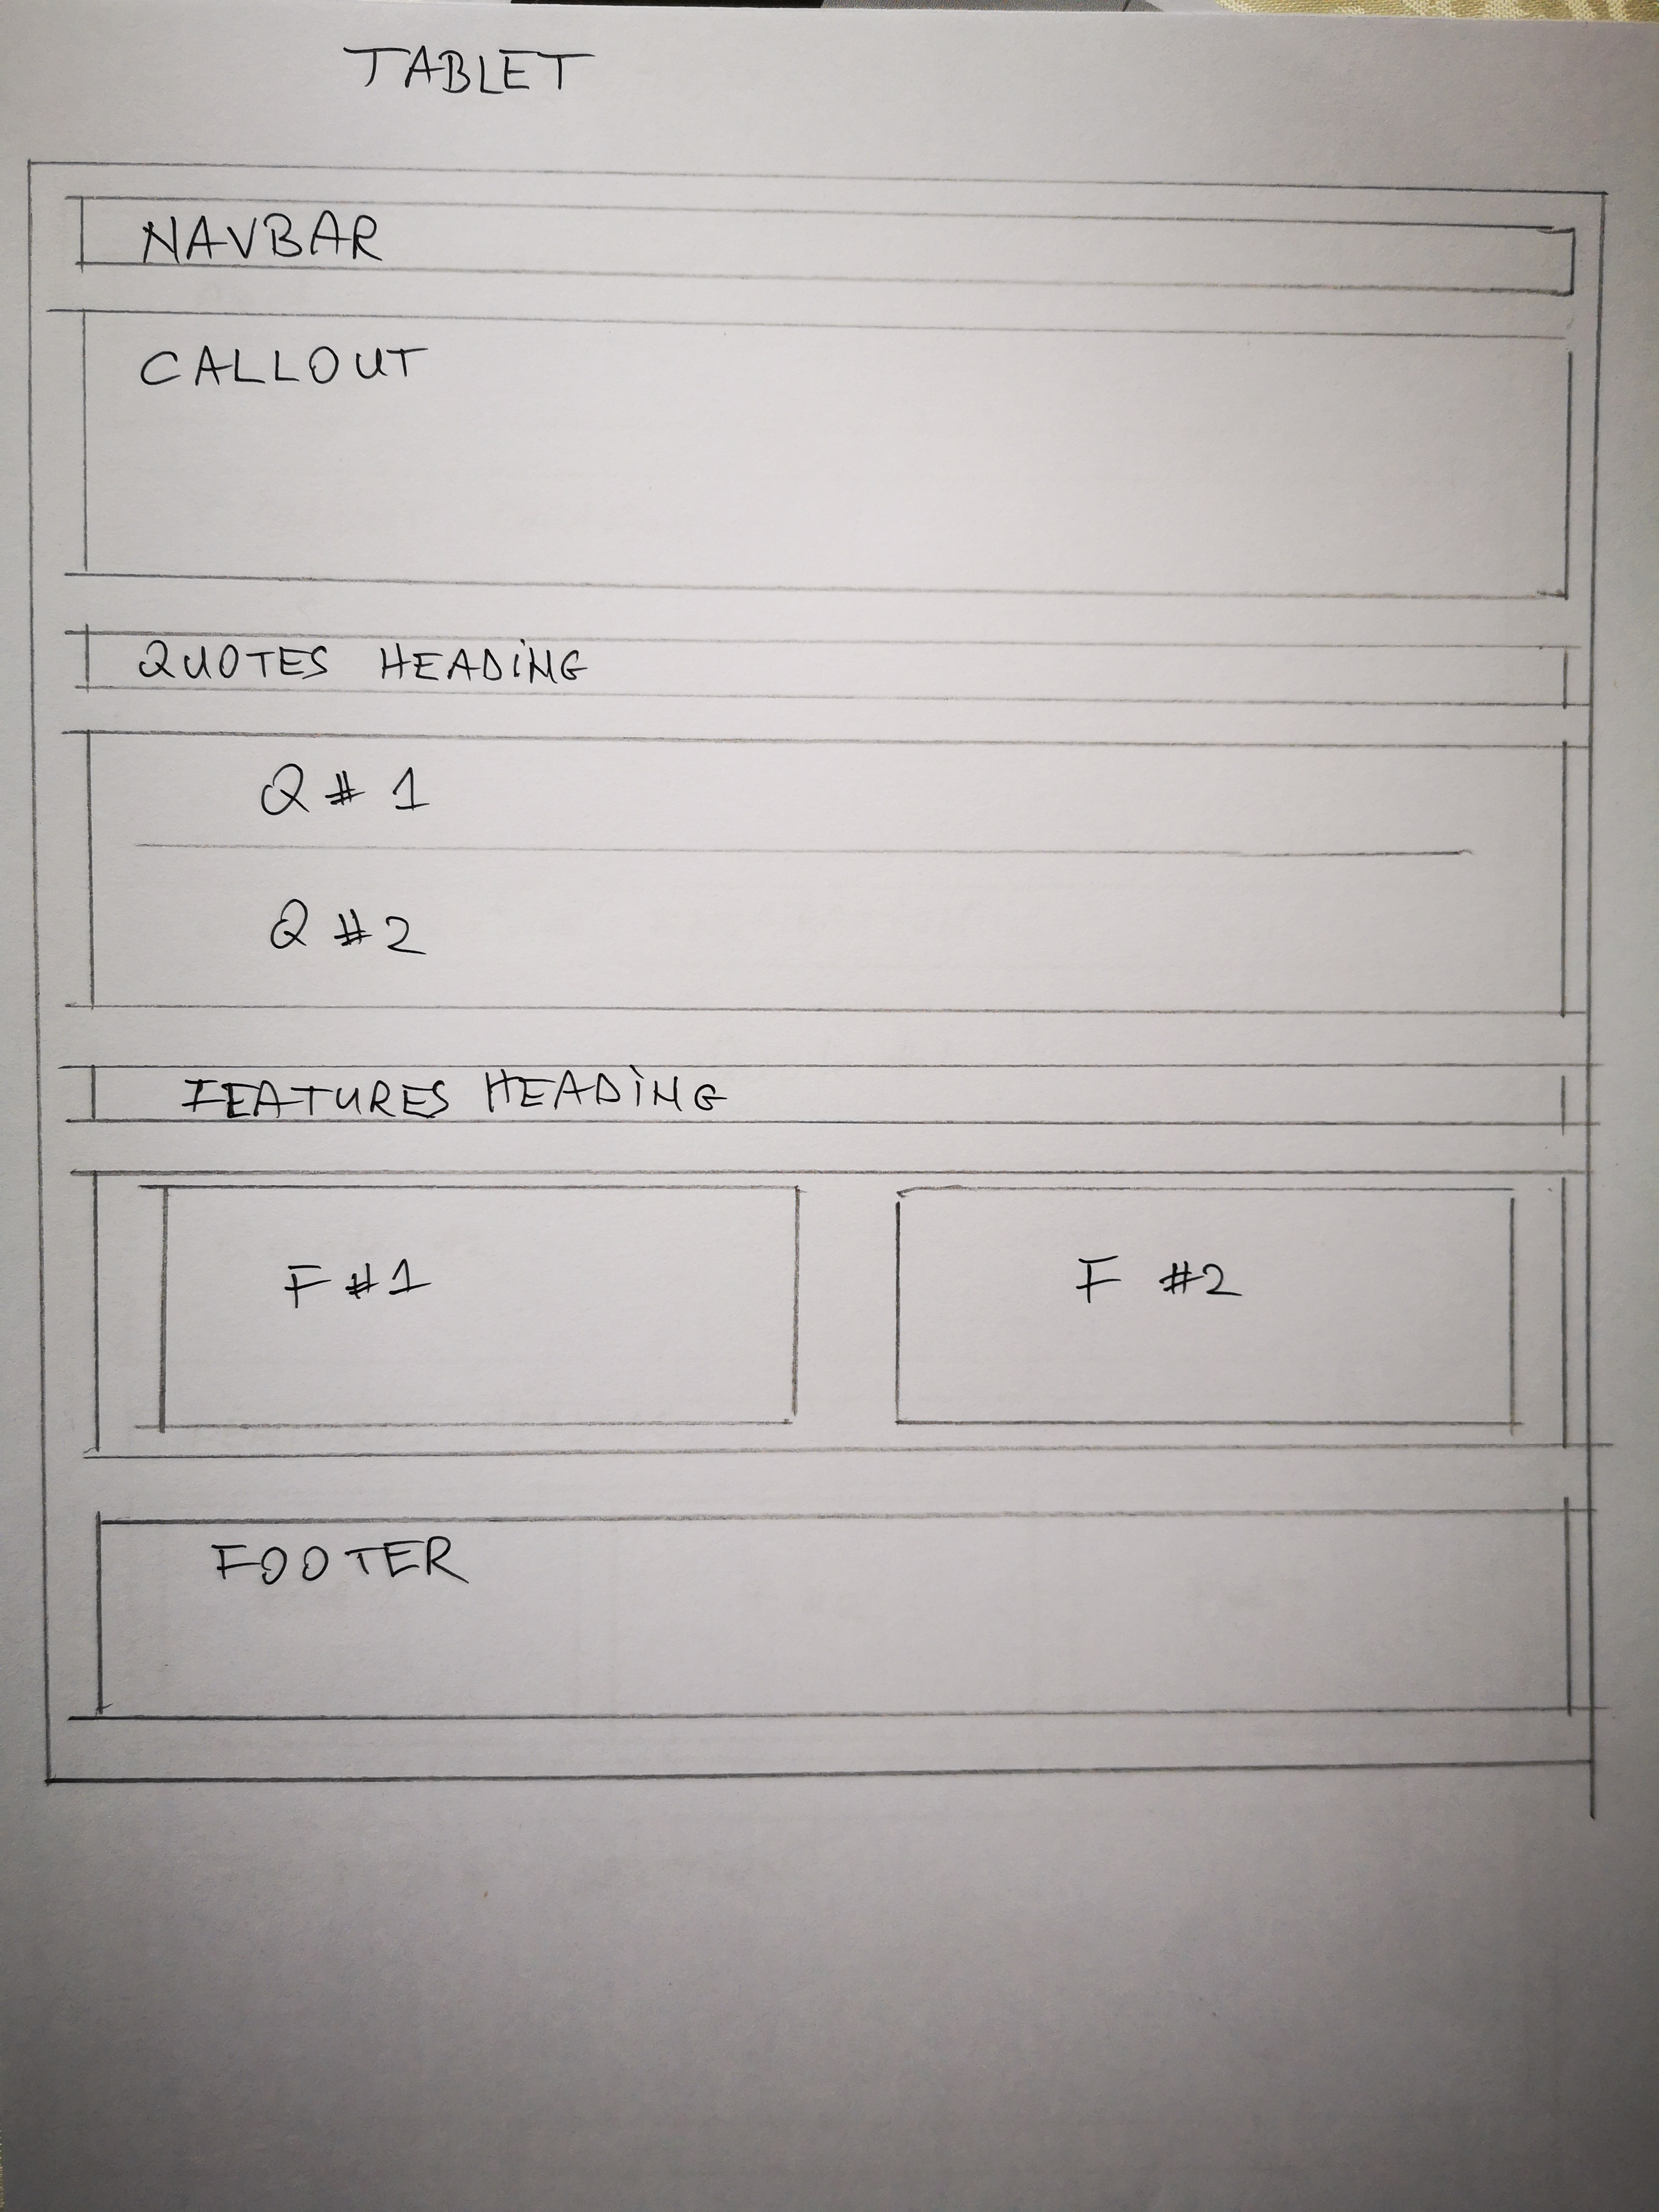 TABLET
NAVBAR
CALLOUT
QUOTES HEADING
Q # 1
Q #2
FEATURES HEADING
F #1
F #2
FOOTER